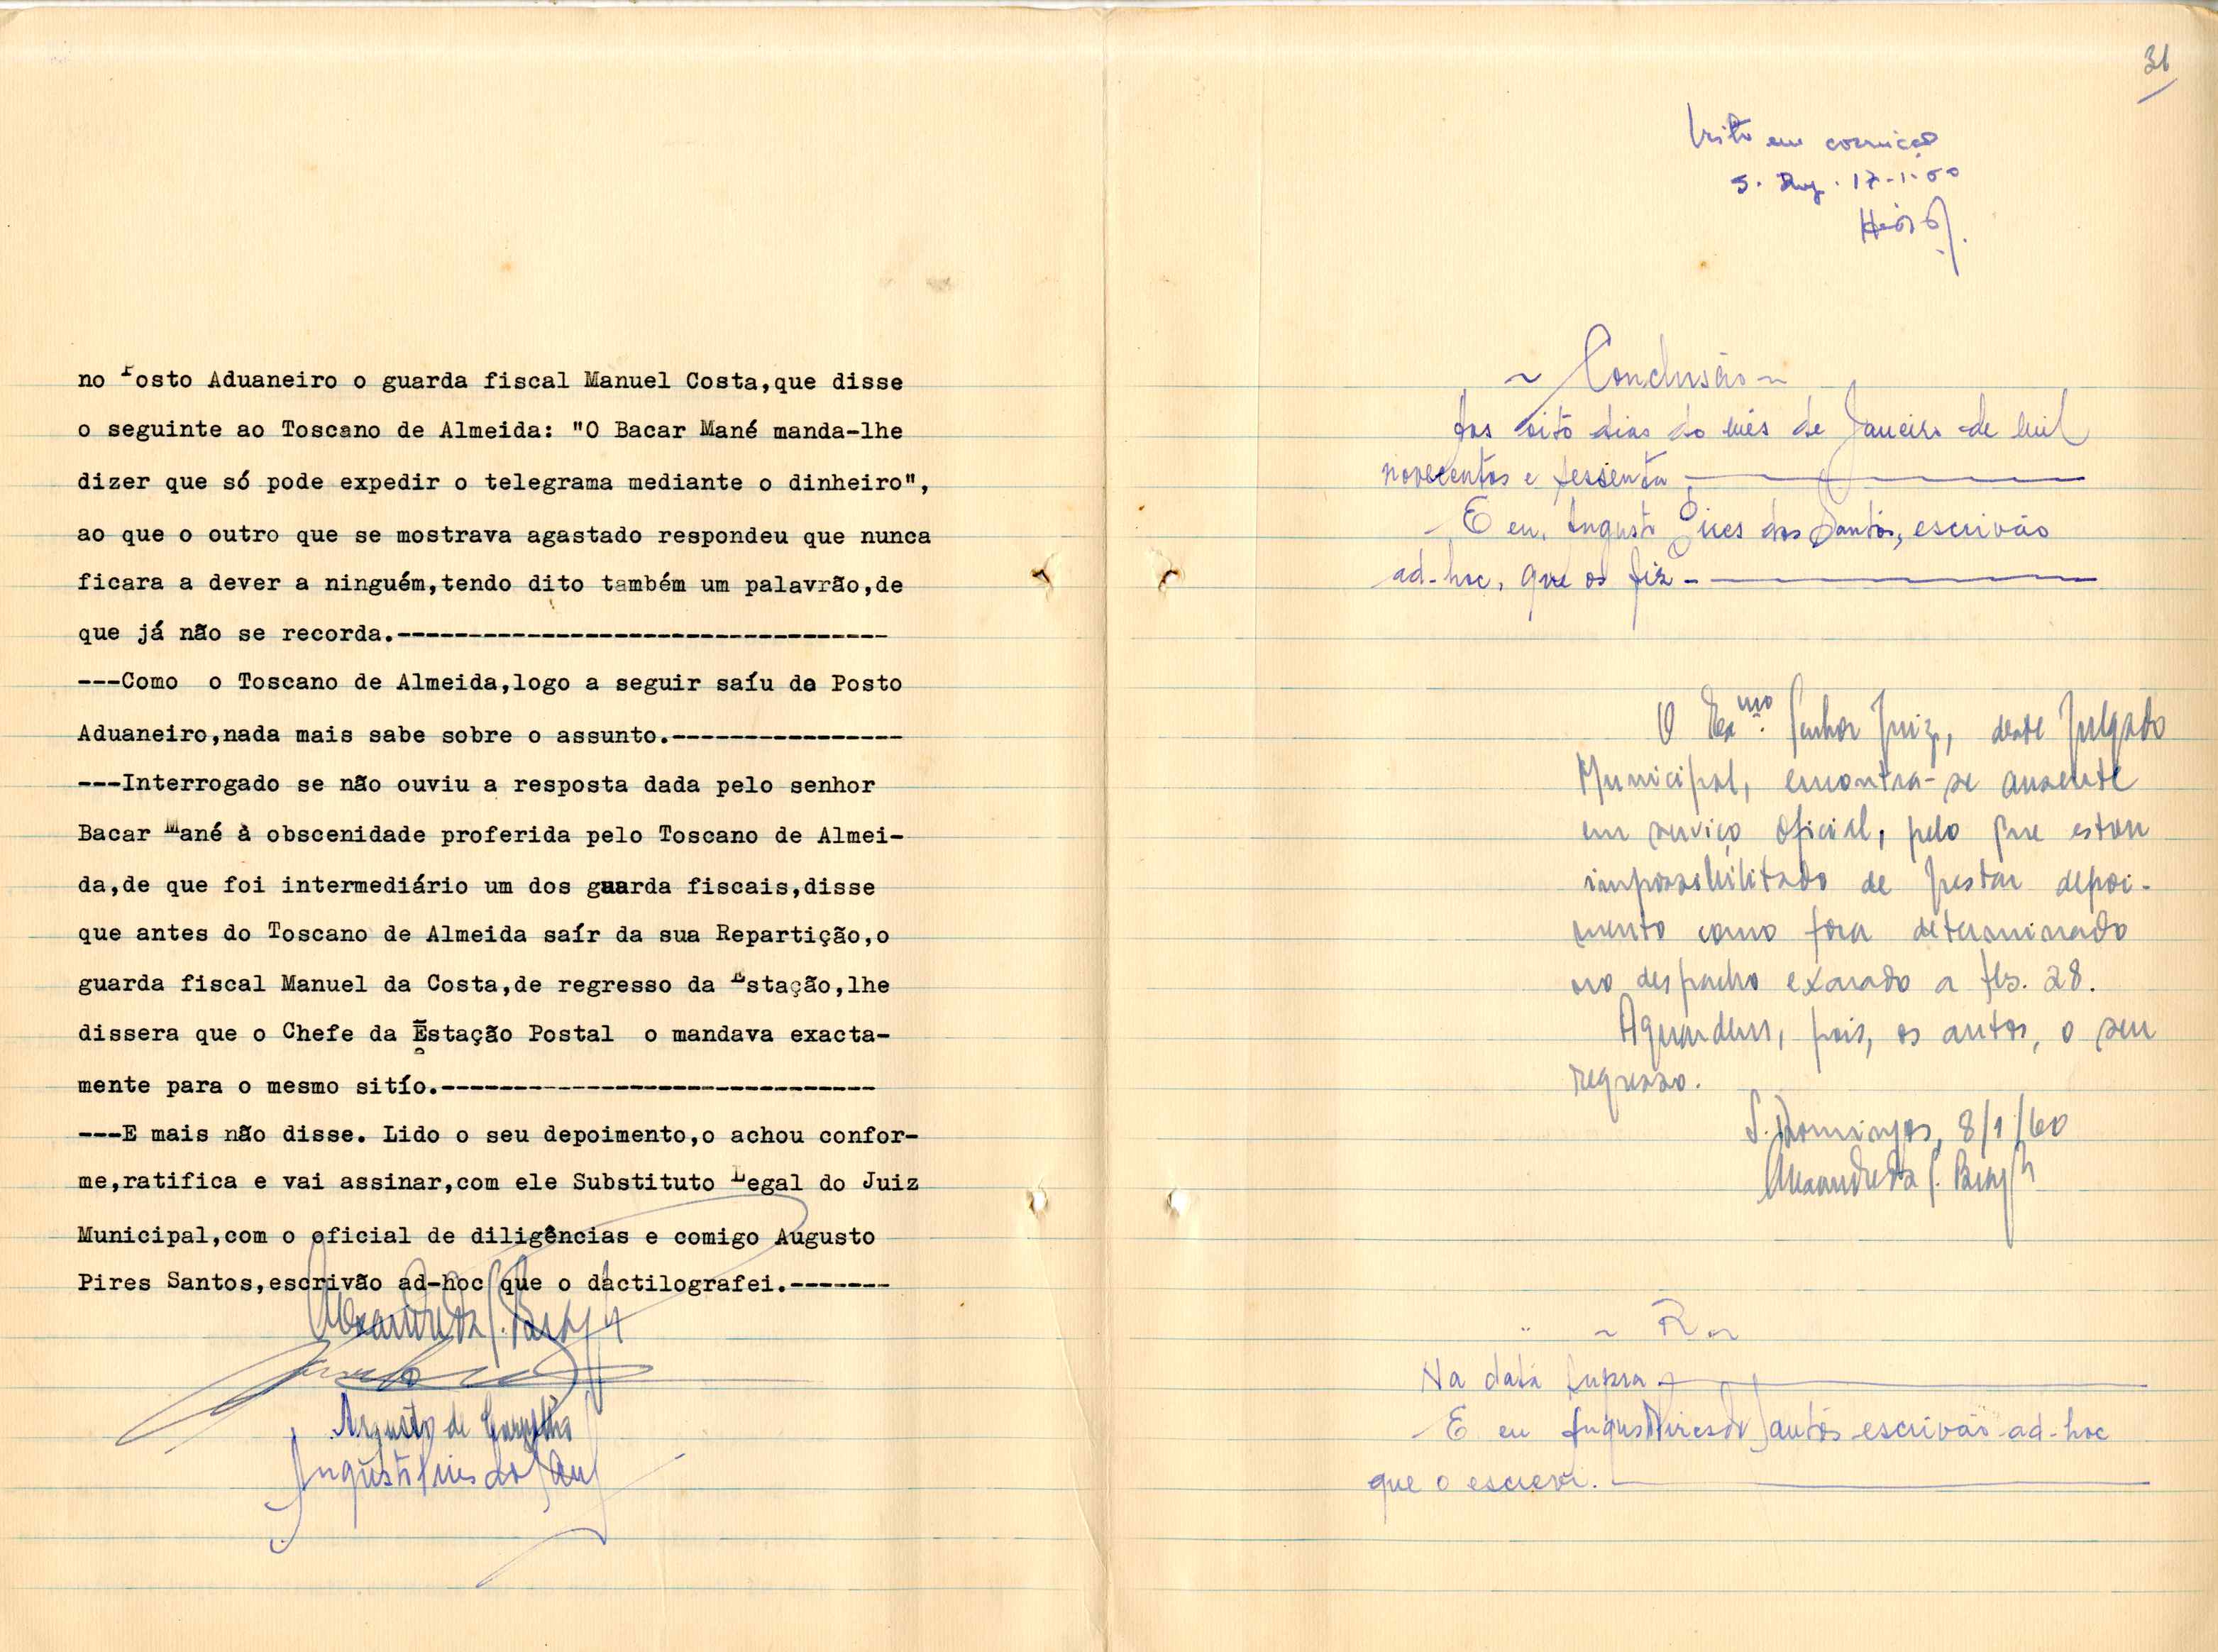 no Posto Aduaneiro o guarda fiscal Manuel Costa,que disse
o seguinte ao Toscano de Almeida: "O Bacar Mané manda-lhe
dizer que só pode expedir o telegrama mediante o dinheiro",
ao que o outro que se mostrava agastado respondeu que nunca
ficara a dever a ninguém,tendo dito também um palavrão,de
que já não se recorda.----------------------------------
---Como o Toscano de Almeida,logo a seguir saíu do Posto
Aduaneiro,nada mais sabe sobre o assunto.----------------
---Interrogado se não ouviu a resposta dada pelo senhor
Bacar Mané à obscenidade proferida pelo Toscano de Almei-
da,de que foi intermediário um dos guarda fiscais,disse
que antes do Toscano de Almeida saír da sua Repartição,o
guarda fiscal Manuel da Costa,de regresso da Estação,lhe
dissera que o Chefe da Estação Postal o mandava exacta-
mente para o mesmo sitío.------------------------------
---E mais não disse. Lido o seu depoimento,o achou confor-
me,ratifica e vai assinar,com ele Substituto Legal do Juiz
Municipal,com o oficial de diligências e comigo Augusto
Pires Santos,escrivão ad-hoc que o dactilografei.-------
Augusto de Carvalho
Augusto Pires dos San
31
Visto em correição
S. Dog. 17-1-60
~ Conclusão ~
Aos oito dias do mês de Janeiro de mil
novecentos e sessenta
E eu, Augusto Pires dos Santos, escrivão
ad-hoc, que os fiz -
O Exmo. Senhor Juiz, deste Julgado
Municipal, encontra-se ausente
em serviço oficial, pelo que estou
impossibilitado de prestar depoi-
mento como fora determinado
no despacho exarado a fls. 28.
Aguardem, pois, os autos, o seu
regresso.
S. Domingos, 8/1/60
~ R. ~
Na data supra
E eu Augusto Pires dos Santos escrivão ad-hoc
que o escrevi.